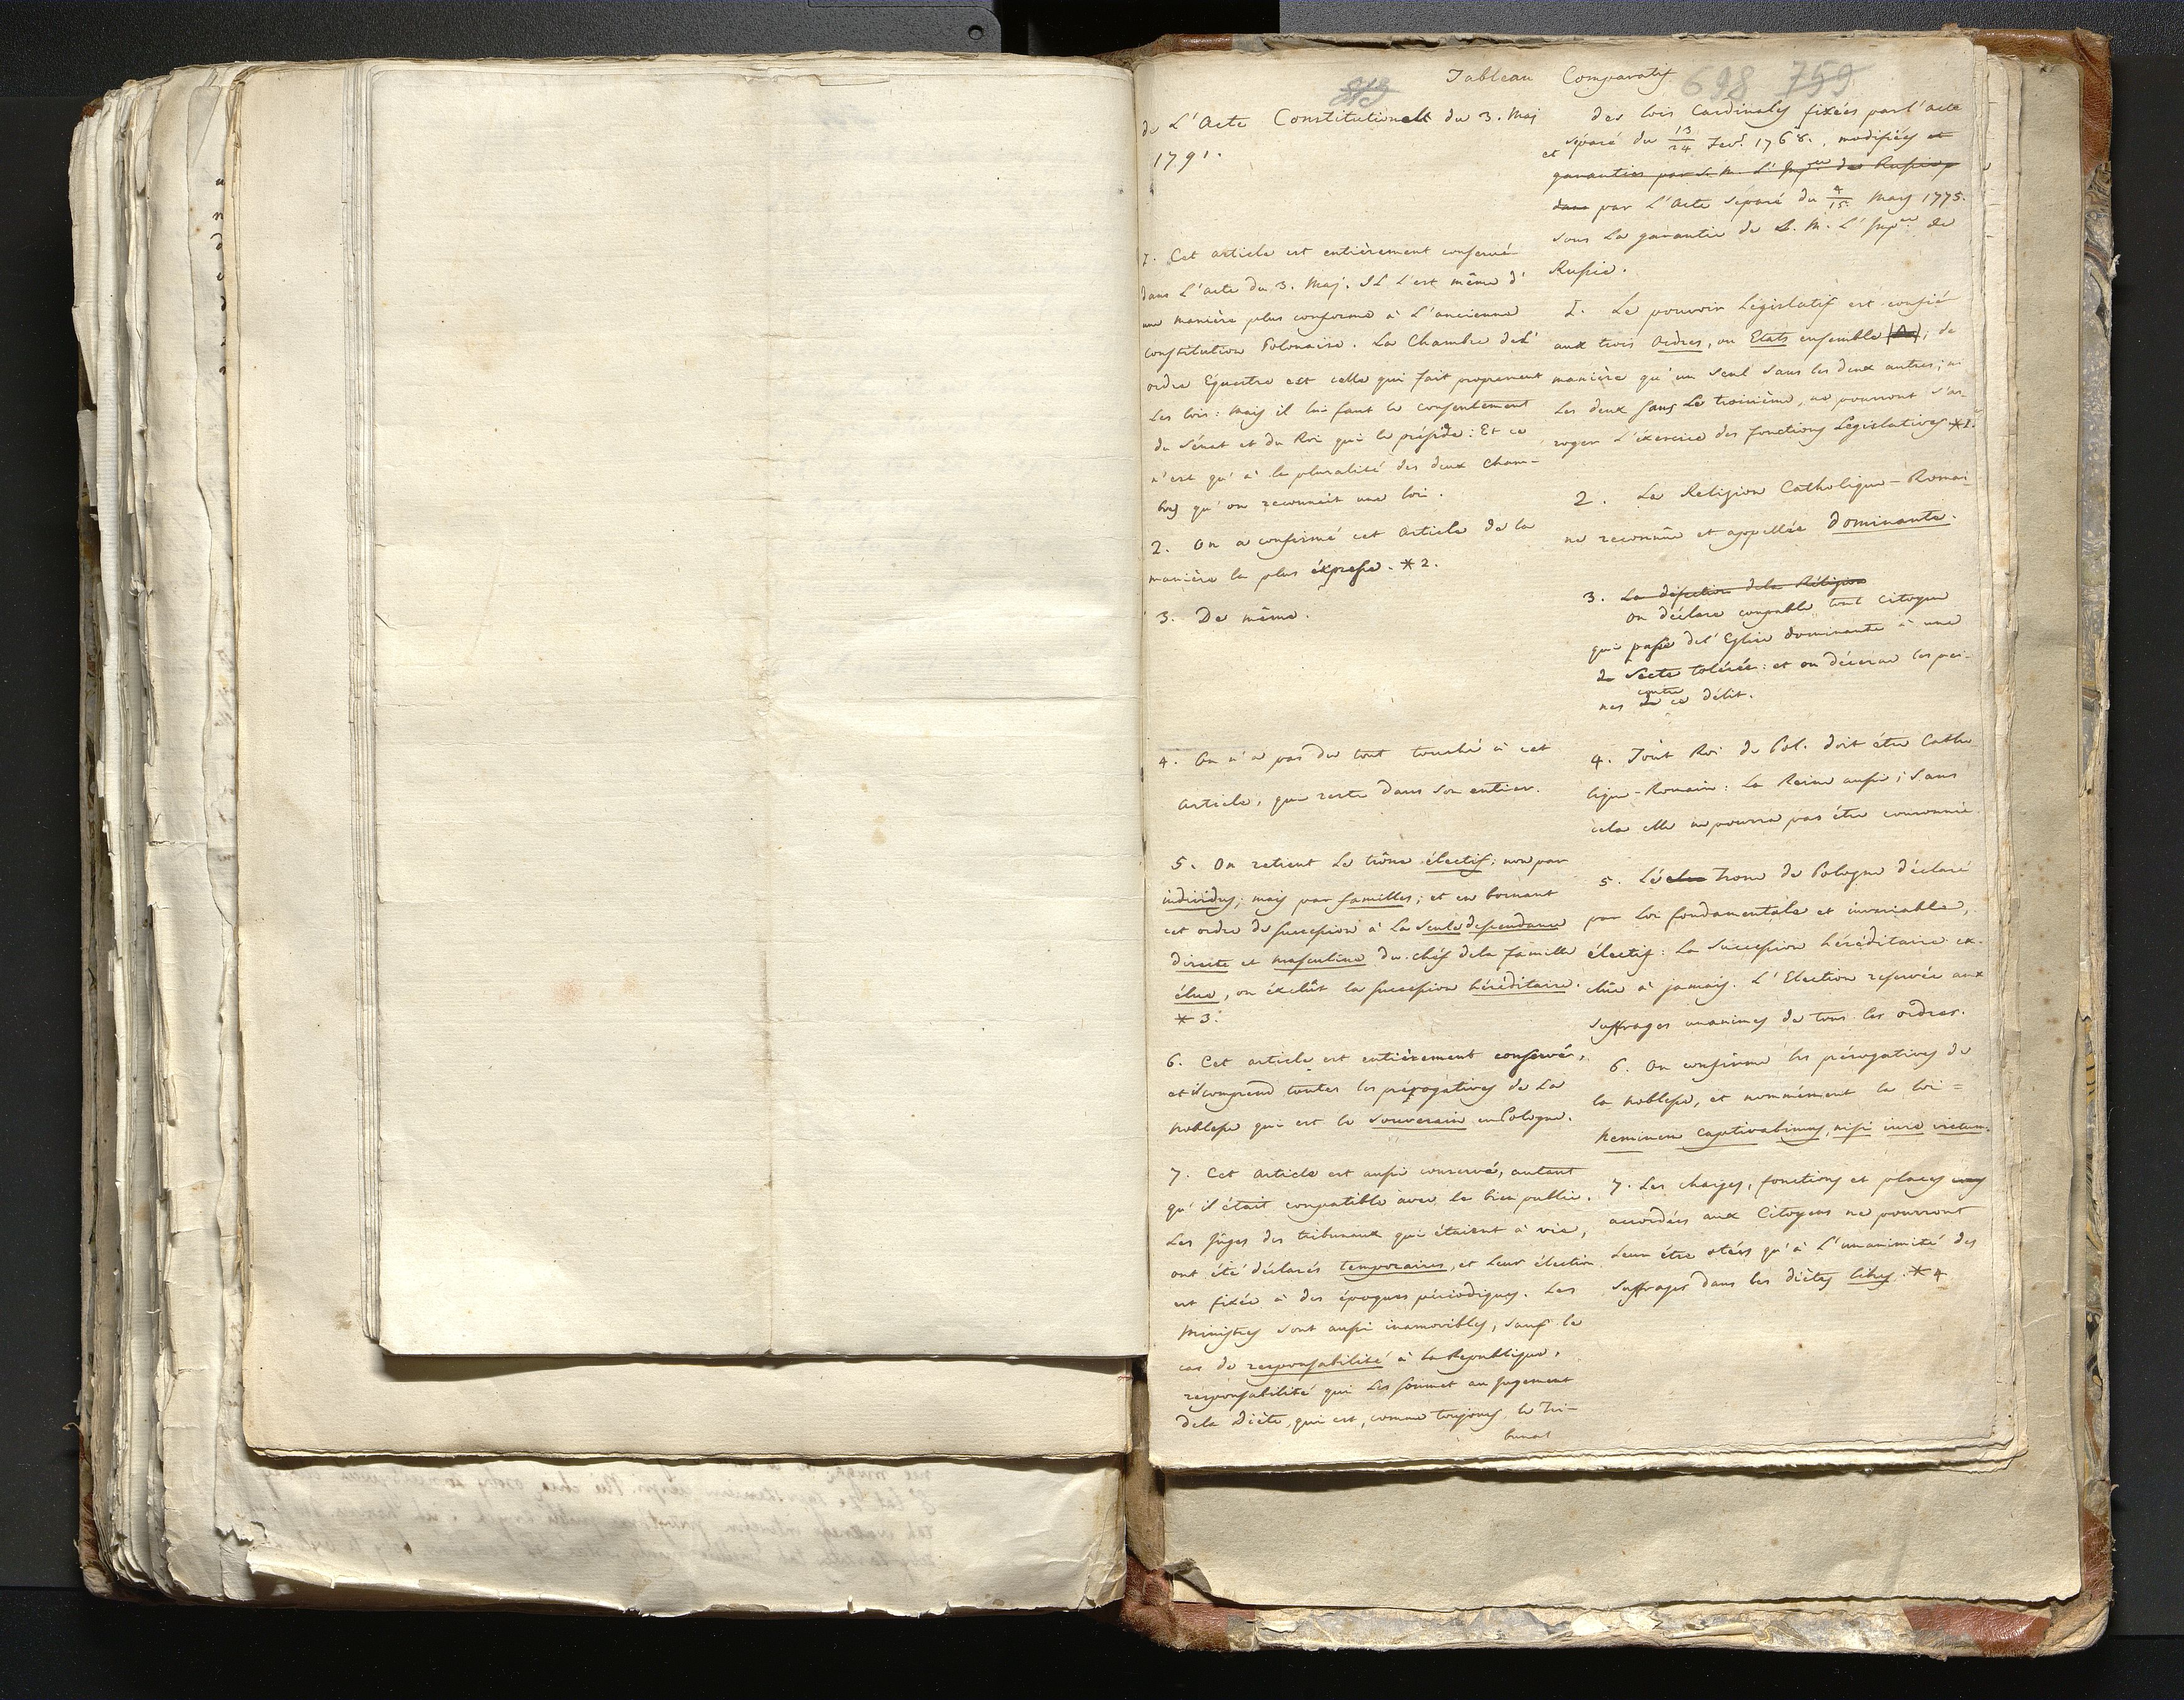 Tableau Comparatif 698 759
de L'Acte Constitutionell du 3. Maj
1791.
1. Cet article est entièrement conservé
dans L'acte du 3. Maj. Il l'est même d'
une manière plus conforme à L'ancienne
constitution Polonaise. La Chambre de L'
ordre Equestre est celle qui fait proprement
Les loix: mais il lui faut le consentement
du Sénat et du Roi qui le préside: Et ce
n'est qu'à la pluralité des deux Cham-
bres qu'on reconnait une loi.
2. On a confirmé cet Article de la
manière la plus éxpresse. *2.
3. De même.
4. On n'a pas du tout touché à cet
Article, qui reste dans son entier.
5. On retient Le trône électif; non par
individus; mais par familles; et en bornant
cet ordre de succession à La seule descendance
directe et masculine du chéf de la famille
élue, on éxclût la succession héréditaire.
*3.
6. Cet article est entièrement conservé,
et il comprend toutes les prérogatives de La
noblesse qui est le souverain en Pologne.
7. Cet Article est aussi conservé, autant
qu'il était compatible avec le bien public.
Les Juges des tribunaux qui étaient à vie,
ont été déclarés temporaires, et Leur élection
est fixée à des époques périodiques. Les
Ministres sont aussi inamovibles, sauf le
cas de responsabilité à la République,
responsabilité qui les soumet au jugement
de la Diète, qui est, comme toujours, le Tri-
bunal
des loix Cardinales fixées par l'acte
séparé du 13/24 Fevr. 1768., modifiées et
et garanties par S. M. L'Impce des Russies
dans par L'Acte séparé du 4/15 Mars 1775.
sous La garantie de S. M. L'Impce de
Russie.
I. Le pouvoir Législatif est confié
aux trois Ordres, ou Etats ensemble, de
manière qu'un seul sans les deux autres; ni
Les deux sans Le troisième, ne pourront s'ar-
roger L'éxercice des fonctions Législatives *1.
2. La Religion Catholique-Romai-
ne reconnüe et appellée dominante.
3. La défection de la Réligion
On déclare coupable tout citoyen
qui passe de l'Eglise dominante à une
de Secte tolérée: et on décerne les pei-
contre
nes de ce délit.
4. Tout Roi de Pol. doit être Catho
lique-Romain: La Reine aussi; sans
cela elle ne pourra pas être couronnée
5. Le Trone de Pologne déclaré
par Loi fondamentale et invariable,
électif: La Succession héréditaire ex-
clüe à jamais. L'Election reservée aux
suffrages unanimes de tous les ordres.
6. On confirme les prérogatives de
la noblesse, et nommément la loi =
Neminem captivabimus, nisi iure victum.
7. Les charges, fonctions et places
accordées aux Citoyens ne pourront
Leur être otées qu'à L'unanimité des
Suffrages dans les diètes libres. *4